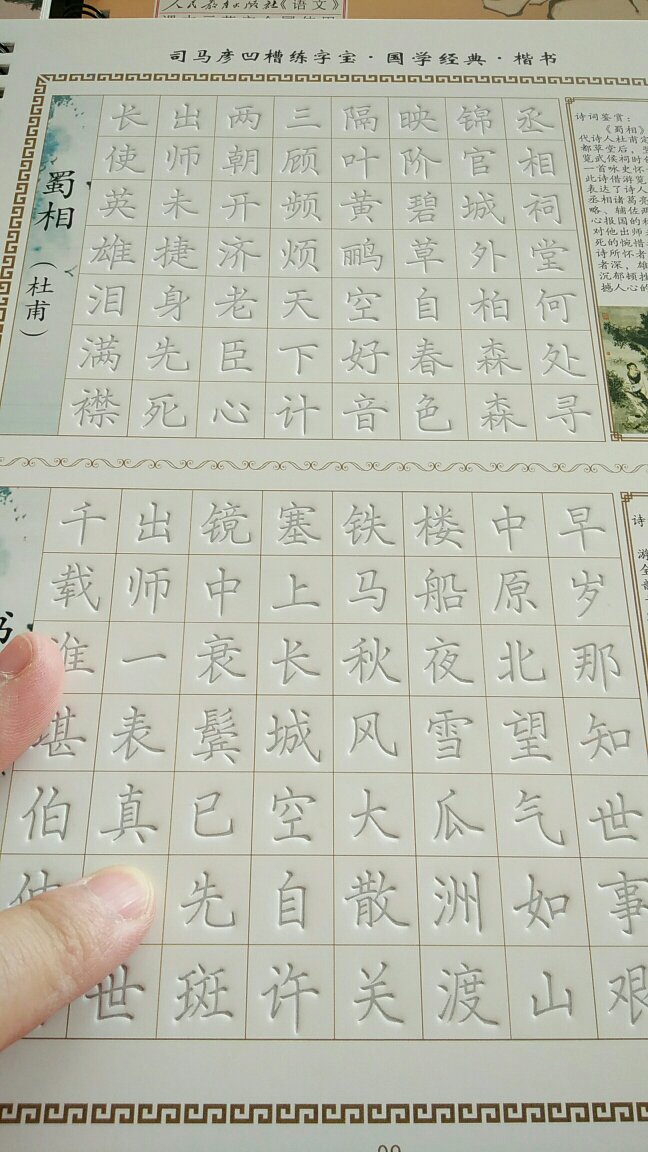 人民教育出版社《语文》
司马彦凹槽练字宝·国学经典·楷书
诗词鉴赏：
《蜀相》
代诗人杜甫定
都草堂后，
览武侯祠时
一首咏史怀
此诗借游览
表达了诗人
丞相诸葛亮
略、辅佐两
心报国的
对他出师未
死的惋惜
诗所怀者
者深，雄
沉郁顿挫
撼人心的
丞相祠堂何处寻
锦官城外柏森森
映阶碧草自春色
隔叶黄鹂空好音
三顾频烦天下计
两朝开济老臣心
出师未捷身先死
长使英雄泪满襟
蜀相
（杜甫）
诗
早岁那知世事艰
中原北望气如山
楼船夜雪瓜洲渡
铁马秋风大散关
塞上长城空自许
镜中衰鬓已先斑
出师一表真世
千载谁堪伯仲
书